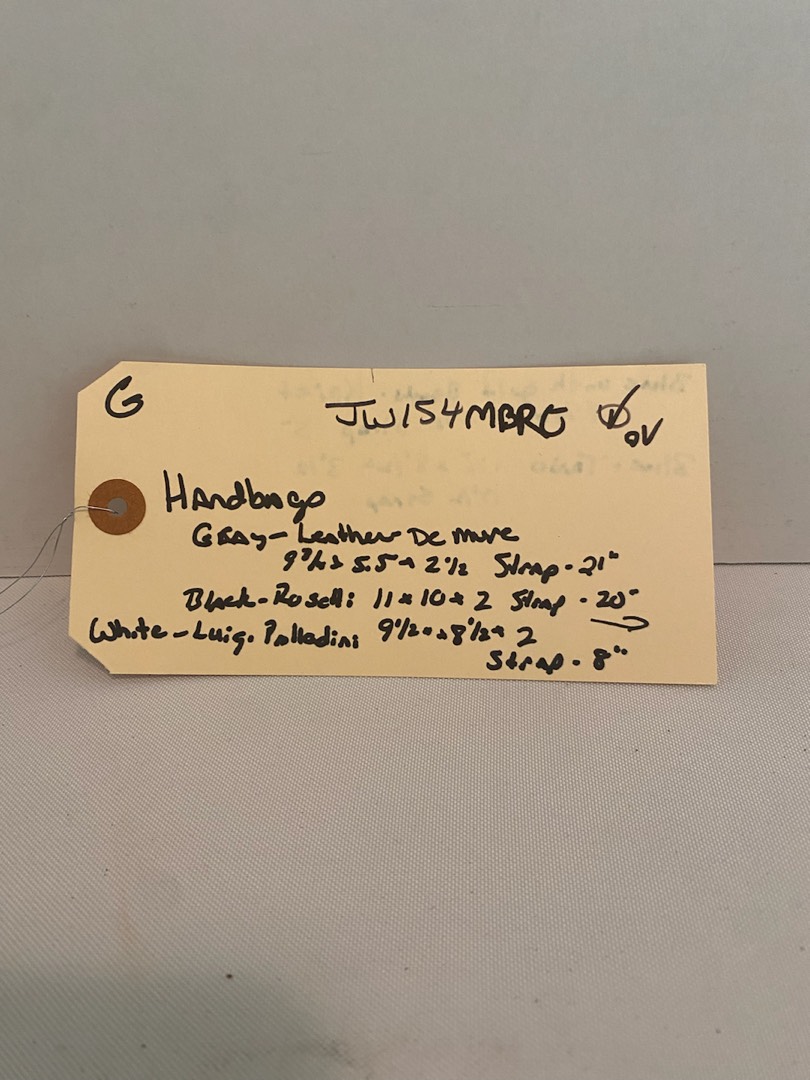 G
JW154MBRG
OV
Handbags
Gray - Leather De Mure
5.5 x 2 1/2 Strap - 21"
Black - Roselli 11 x 10 x 2 Strap - 20"
White - Luigi Palladini 9 1/2 x 8 1/2 x 2
Strap - 8"